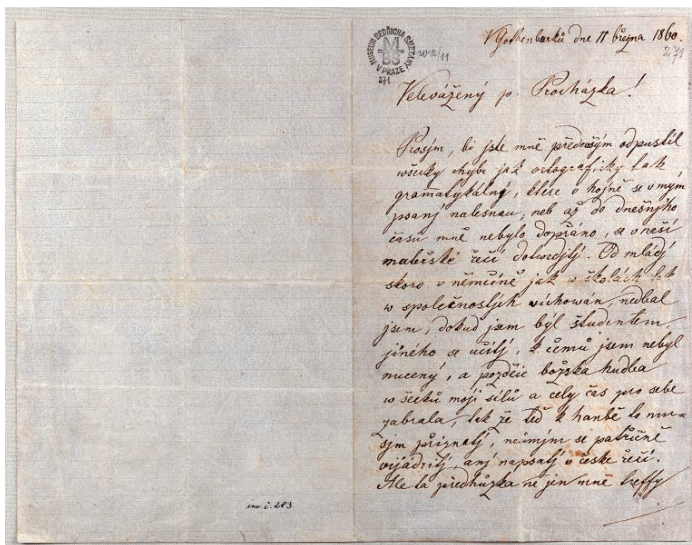 MUSEUM BEDŘICHA SMETANY
V PRAZE
MBS
271
W-2/11
V Gothenburků dne 11 března 1860.
271
Velevážený p. Procházka!
Prosým, bi jste mně předewším odpustil
wšecky chybi jak ortografický tak
gramatykálný, které o hojně se v mým
psaný nalesnau, neb až do dnešnýho
času mně nebylo dopřáno, se v naší
mateřské řeči dotwrdjtj. Od mládj
skoro v němčině jak w školách tak
w společnostjch wichowán, nedbal
jsem, dokud jsem býl študentem,
jiného se učitj, k čemů jsem nebyl
nucený, a pozděic božska hudba
wšecků moji sílů a cely čas pro sebe
zabrala, tak že teď k hanbě to mu=
sjm přiznatj, neůmjm se patřičně
vijádřitj, anj napsatj v české řeči.
Ale ta předhůzka ne jen mně treffy
inv. č. 283